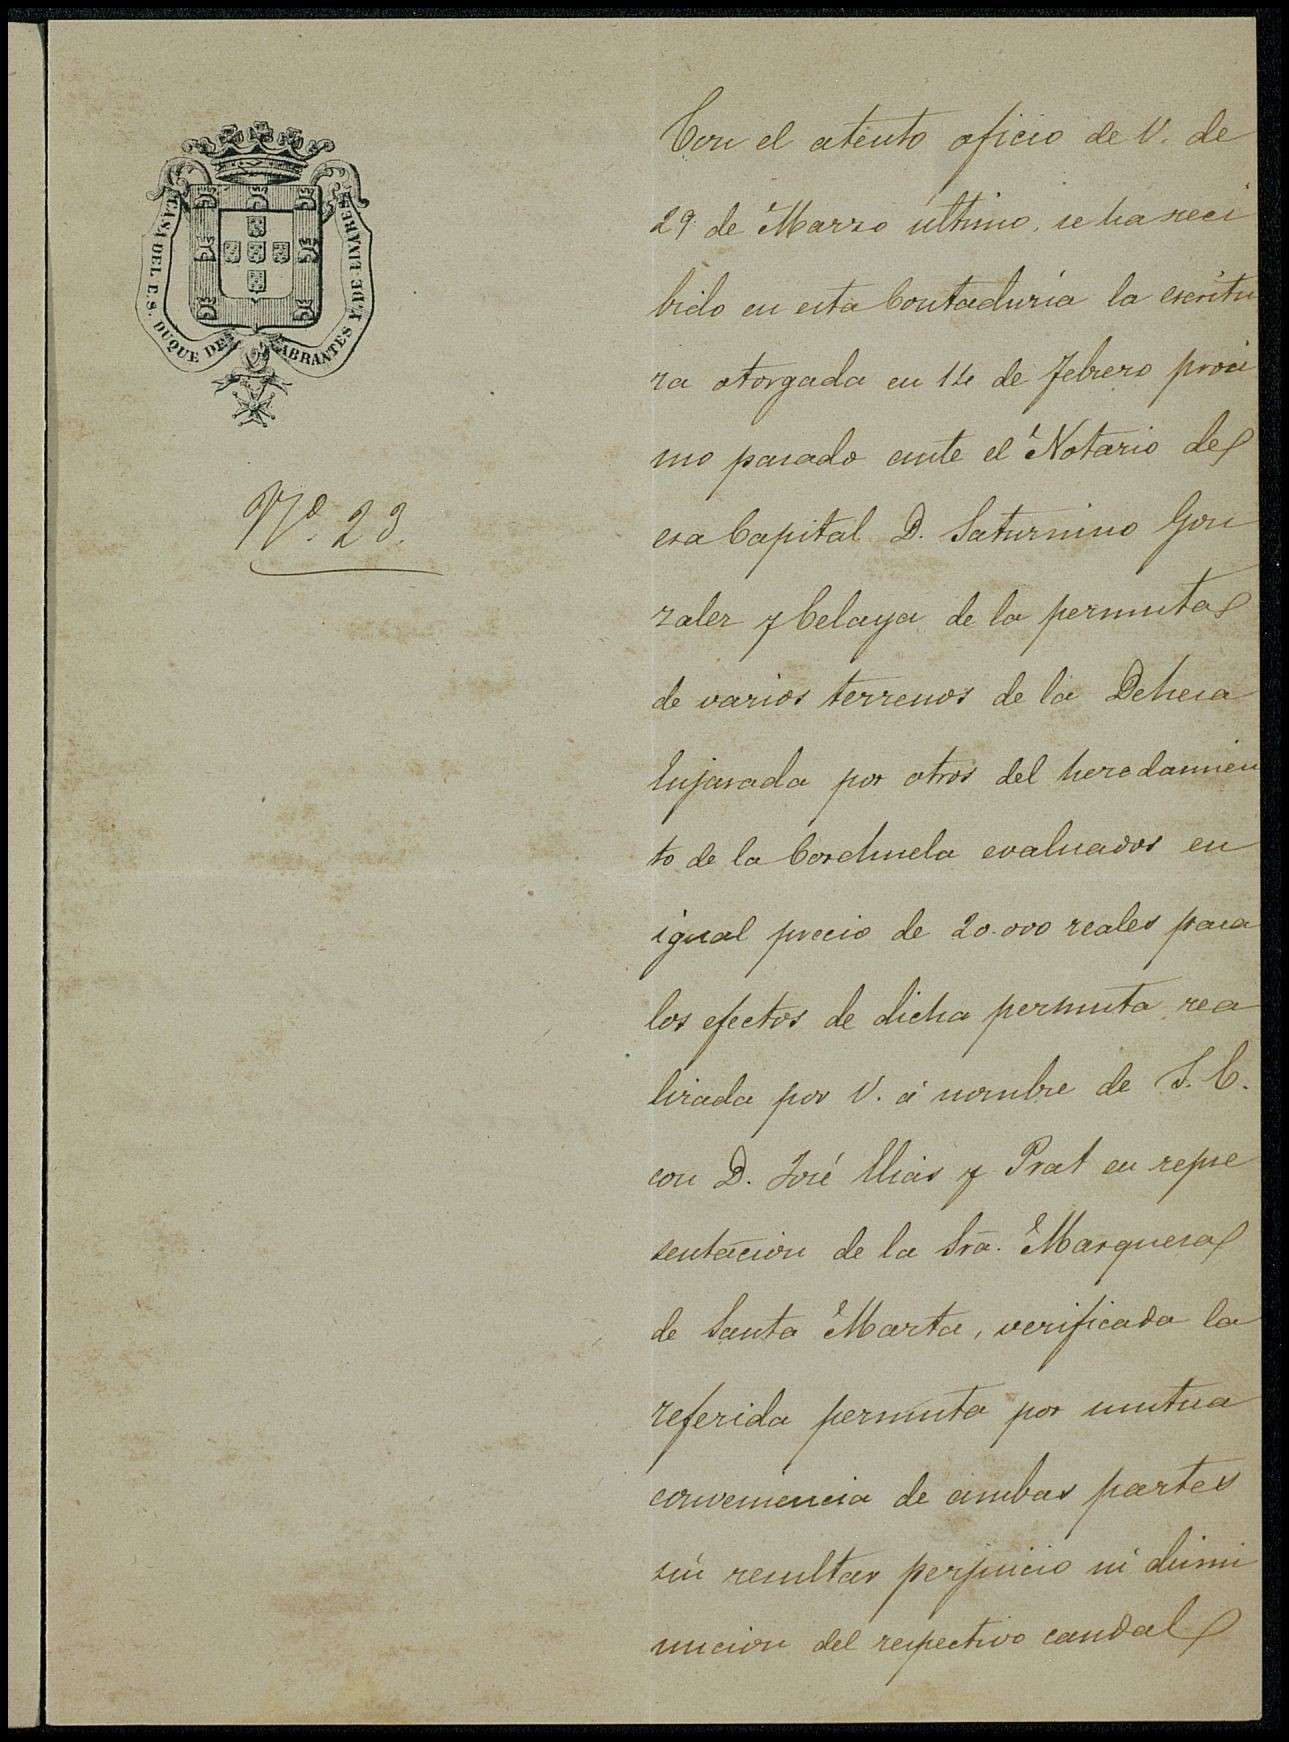 CASA DEL E.S. DUQUE DE ABRANTES Y DE LINARES
Nº. 23.
Con el atento oficio de V. de
29 de Marzo ultimo, se ha reci
bido en esta Contaduría la escritu
ra otorgada en 14 de Febrero proxi
mo pasado ante el Notario de
esa Capital D. Saturnino Gon
zalez y Celaya de la permuta
de varios terrenos de la Dehesa
Enjarada por otros del heredamien
to de la Corchuela evaluados en
igual precio de 20.000 reales para
los efectos de dicha permuta rea
lizada por V. á nombre de S. E.
con D. José Elias y Prat en repre
sentacion de la Srа. Marquesa
de Santa Marta, verificada la
referida permuta por mutua
conveniencia de ambas partes
sin resultar perjuicio ni dismi
nucion del respectivo caudal